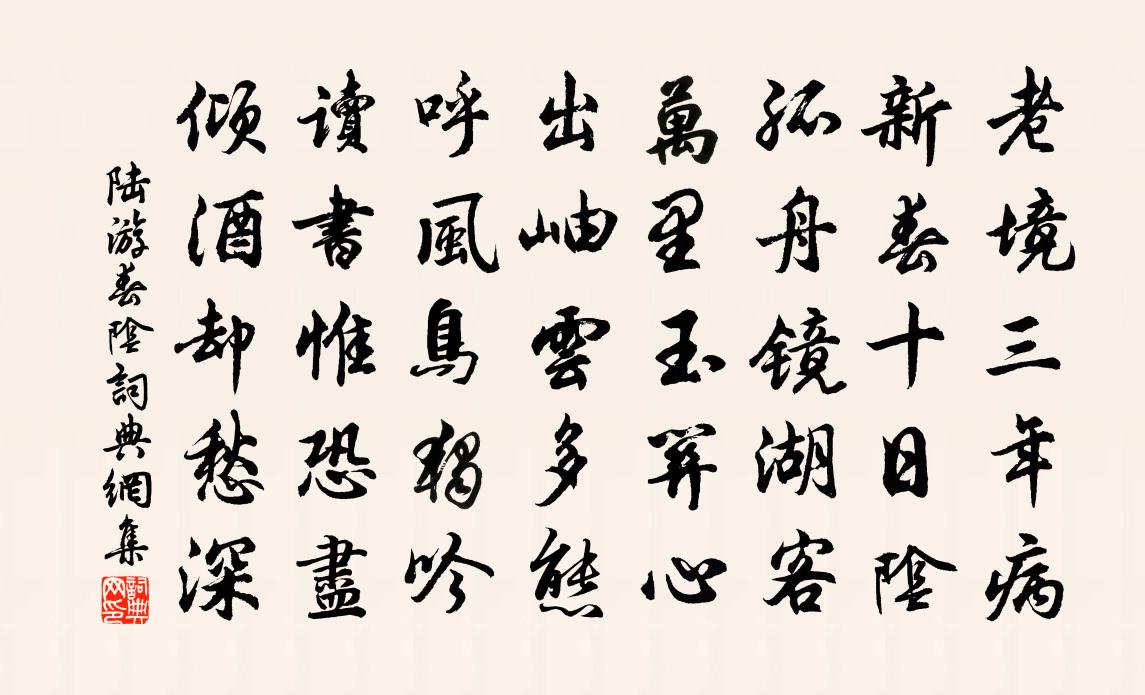 老境三年病
新春十日陰
孤舟鏡湖客
萬里玉關心
出岫雲多態
呼風鳥獨吟
讀書惟恐盡
傾酒却愁深
陸游春陰詞典網集
詞典网印